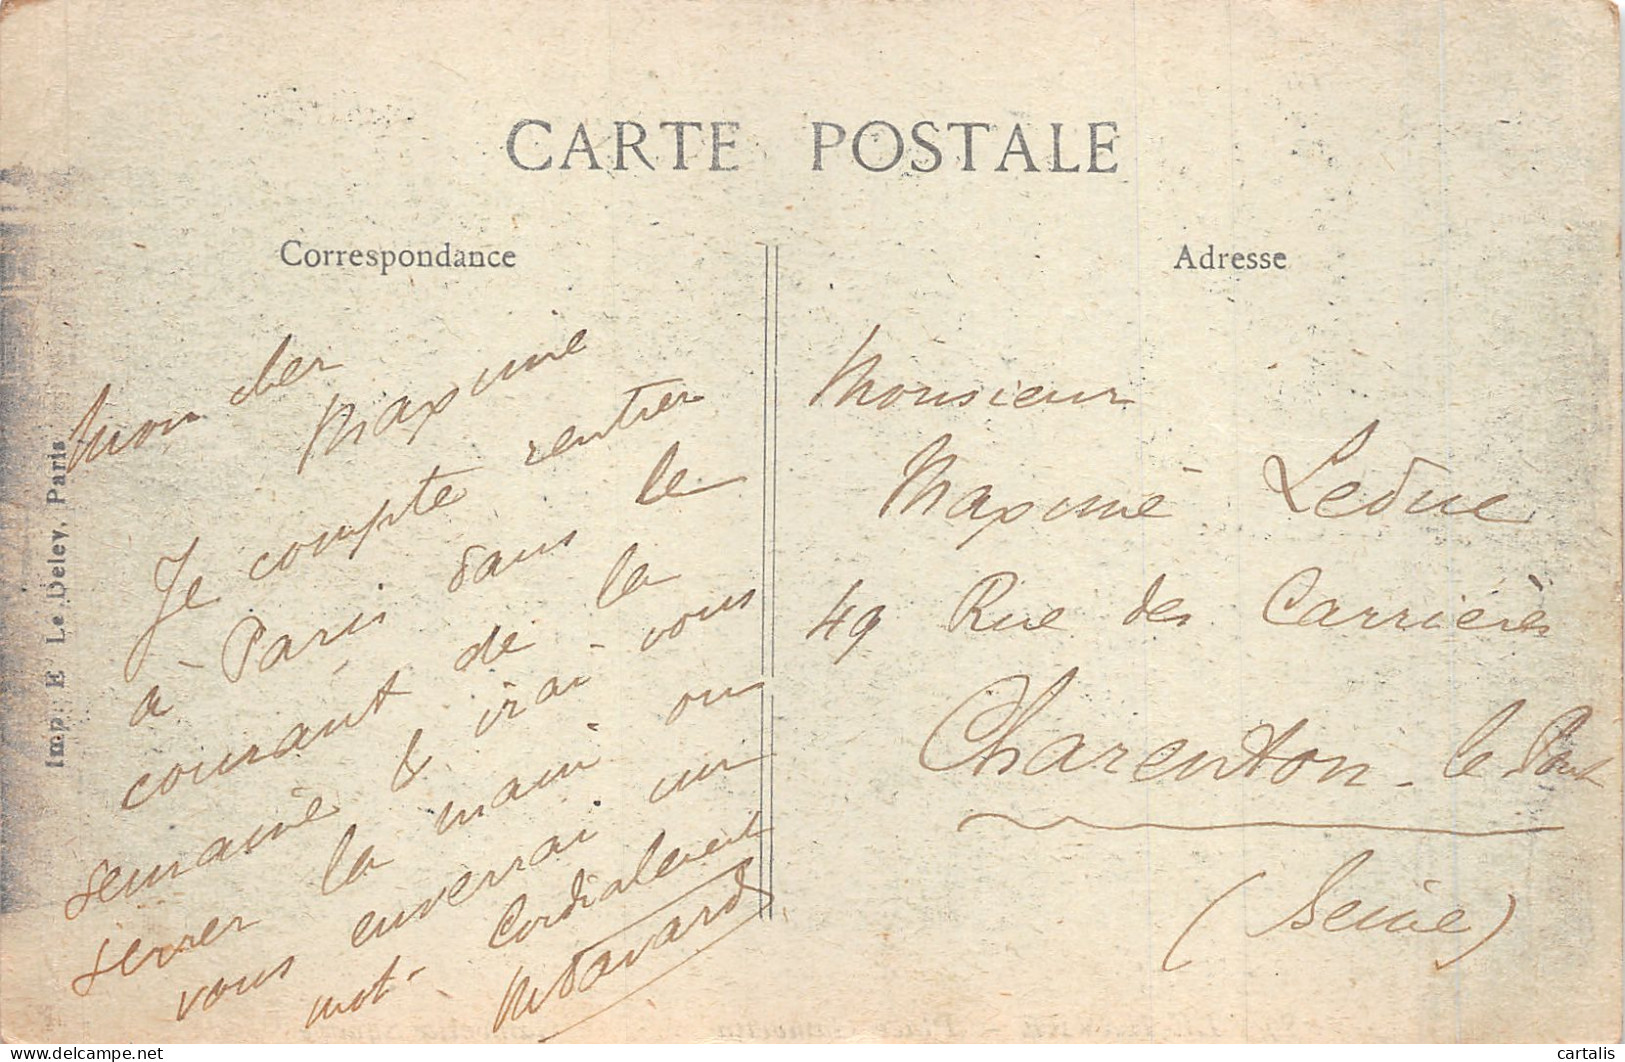 CARTE POSTALE
Correspondance
Mon cher
Maxime
Je compte rentrer
à Paris dans le
courant de la
semaine & irai vous
serrer la main ou
vous enverrai un
mot. Cordialement
Adresse
Monsieur
Maxime Leduc
49 Rue des Carrières
Charenton-le Pont
(Seine)
Imp. E. Le Deley, Paris
delcampe.net
cartalis